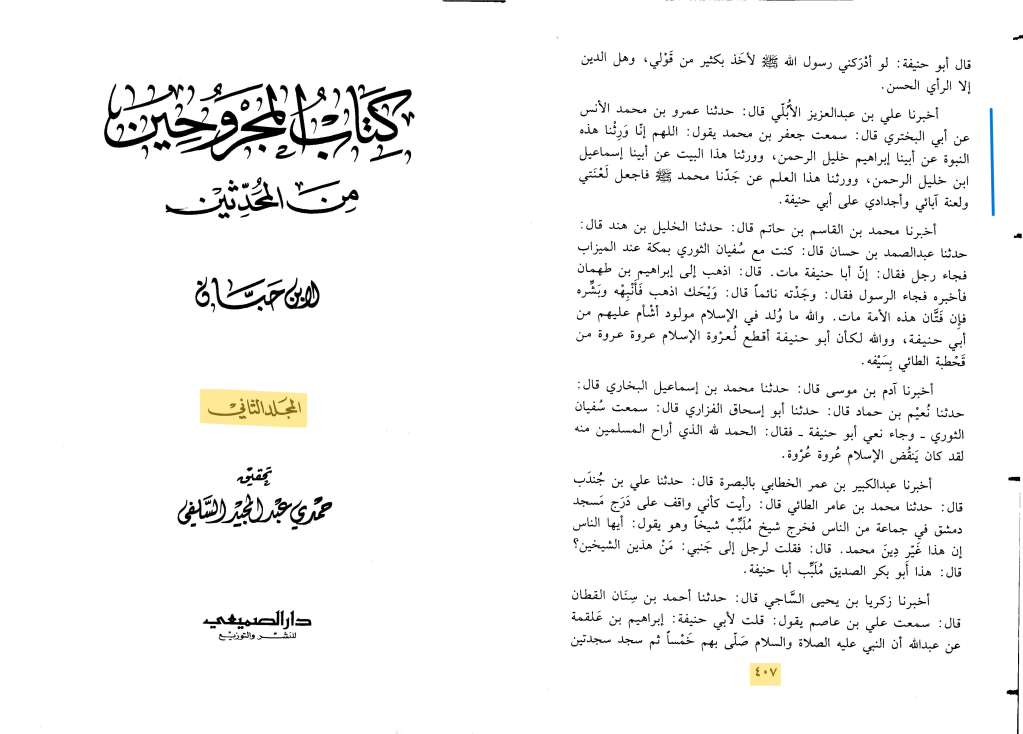 قال أبو حنيفة: لو أدْرَكني رسول الله ﷺ لأخَذ بكثير من قَوْلي، وهل الدين
إلا الرأي الحسن.
أخبرنا علي بن عبدالعزيز الأُبُلّي قال: حدثنا عمرو بن محمد الأنس
عن أبي البختري قال: سمعت جعفر بن محمد يقول: اللهم إنّا وَرِثْنا هذه
النبوة عن أبينا إبراهيم خليل الرحمن، وورثنا هذا البيت عن أبينا إسماعيل
ابن خليل الرحمن، وورثنا هذا العلم عن جَدّنا محمد ﷺ فاجعل لَعْنَتي
ولعنة آبائي وأجدادي على أبي حنيفة.
أخبرنا محمد بن القاسم بن حاتم قال: حدثنا الخليل بن هند قال:
حدثنا عبدالصمد بن حسان قال: كنت مع سُفيان الثوري بمكة عند الميزاب
فجاء رجل فقال: إنّ أبا حنيفة مات. قال: اذهب إلى إبراهيم بن طهمان
فأخبره فجاء الرسول فقال: وجَدْته نائماً قال: وَيْحَك اذهب فَأَنْبِهْه وبَشِّره
فإن فَتَّان هذه الأمة مات. والله ما وُلد في الإسلام مولود أشْأم عليهم من
أبي حنيفة، ووالله لكأن أبو حنيفة أقطع لُعرْوة الإسلام عروة عروة من
قَحْطبة الطائي بِسَيْفه.
أخبرنا آدم بن موسى قال: حدثنا محمد بن إسماعيل البخاري قال:
حدثنا نُعيْم بن حماد قال: حدثنا أبو إسحاق الفزاري قال: سمعت سُفيان
الثوري ـ وجاء نعي أبو حنيفة ـ فقال: الحمد لله الذي أراح المسلمين منه
لقد كان يَنقُض الإسلام عُروة عُرْوة.
أخبرنا عبدالكبير بن عمر الخطابي بالبصرة قال: حدثنا علي بن جُندَب
قال: حدثنا محمد بن عامر الطائي قال: رأيت كأني واقف على دَرَج مَسجد
دمشق في جماعة من الناس فخرج شيخ مُلَبِّبٌ شيخاً وهو يقول: أيها الناس
إن هذا غَيّر دِينَ محمد. قال: فقلت لرجل إلى جَنبي: مَنْ هذين الشيخين؟
قال: هذا أبو بكر الصديق مُلَبِّب أبا حنيفة.
أخبرنا زكريا بن يحيى السَّاجي قال: حدثنا أحمد بن سِنَان القطان
قال: سمعت علي بن عاصم يقول: قلت لأبي حنيفة: إبراهيم بن عَلقمة
عن عبدالله أن النبي عليه الصلاة والسلام صَلّى بهم خَمْساً ثم سجد سجدتين
٤٠٧
كِتَابُ المَجْرُوحِين
مِنَ المُحَدِّثين
لابن حَبَّان
المجلد الثاني
تحقيق
حمدي عبد المجيد السَّلفي
دار الصميعي
للنشر والتوزيع